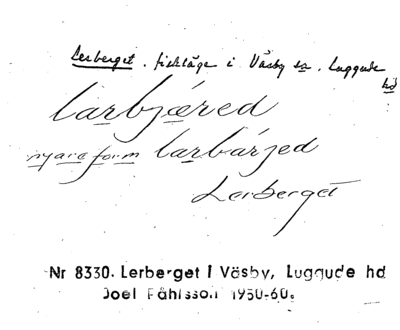 Lerberget. fiskläge i Väsby sn. Luggude hd
larbjæred
nyare form larbárjed
Lerberget
Nr 8330. Lerberget i Väsby, Luggude hd
Joel Påhlsson 1950-60.